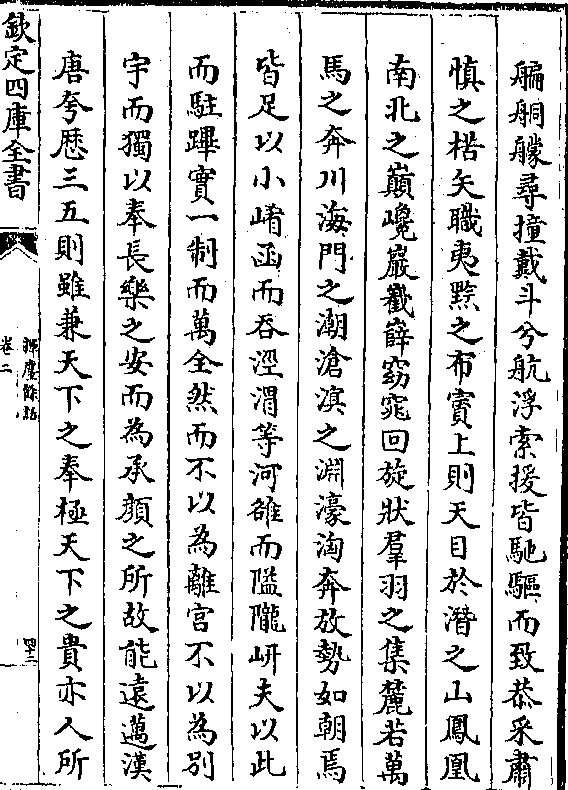 艑艒艨尋撞戴斗兮航浮索援皆馳驅而致恭采肅
慎之楛矢職夷黥之布賨上則天目於潛之山鳳凰
南北之巔巉巖巀嶭窈窕回旋狀羣羽之集麓若萬
馬之奔川海門之潮滄溟之淵濠淘奔放勢如朝焉
皆足以小崤函而吞涇渭等河雒而隘隴岍夫以此
而駐蹕實一制而萬全然而不以為離宮不以為别
宇而獨以奉長樂之安而為承顔之所故能遠邁漢
唐夸歴三五則雖兼天下之奉極天下之貴亦人所
欽定四庫全書
揮麈餘話
卷二
四十二